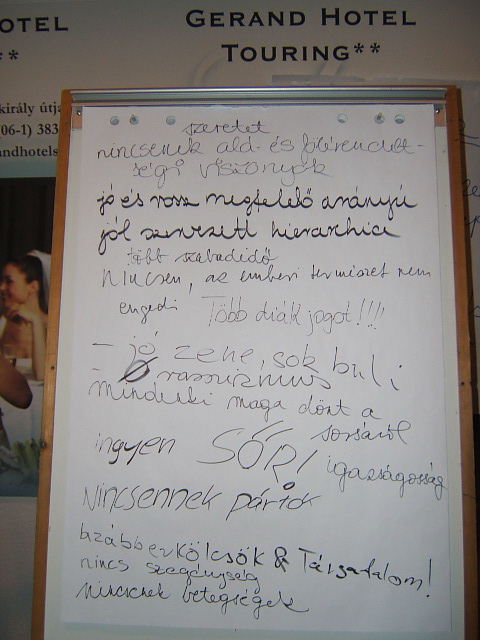 OTEL
**
GERAND HOTEL
TOURING**
király útja
(06-1) 383
andhotels
szeretet
nincsenek alá- és fölérendelt-
ségi viszonyok
jó és rossz megfelelő arányú
jól szervezett hierarchia
több szabadidő
Nincsen, az emberi természet nem
engedi
Több diák jogot!!!!
- jó zene, sok buli
- Ø rasszizmus
mindenki maga dönt a
sorsáról
ingyen SÖR!
igazságosság
Nincsennek pártok
erkölcsök & Társadalom!
nincs szegénység
nincsenek betegségek